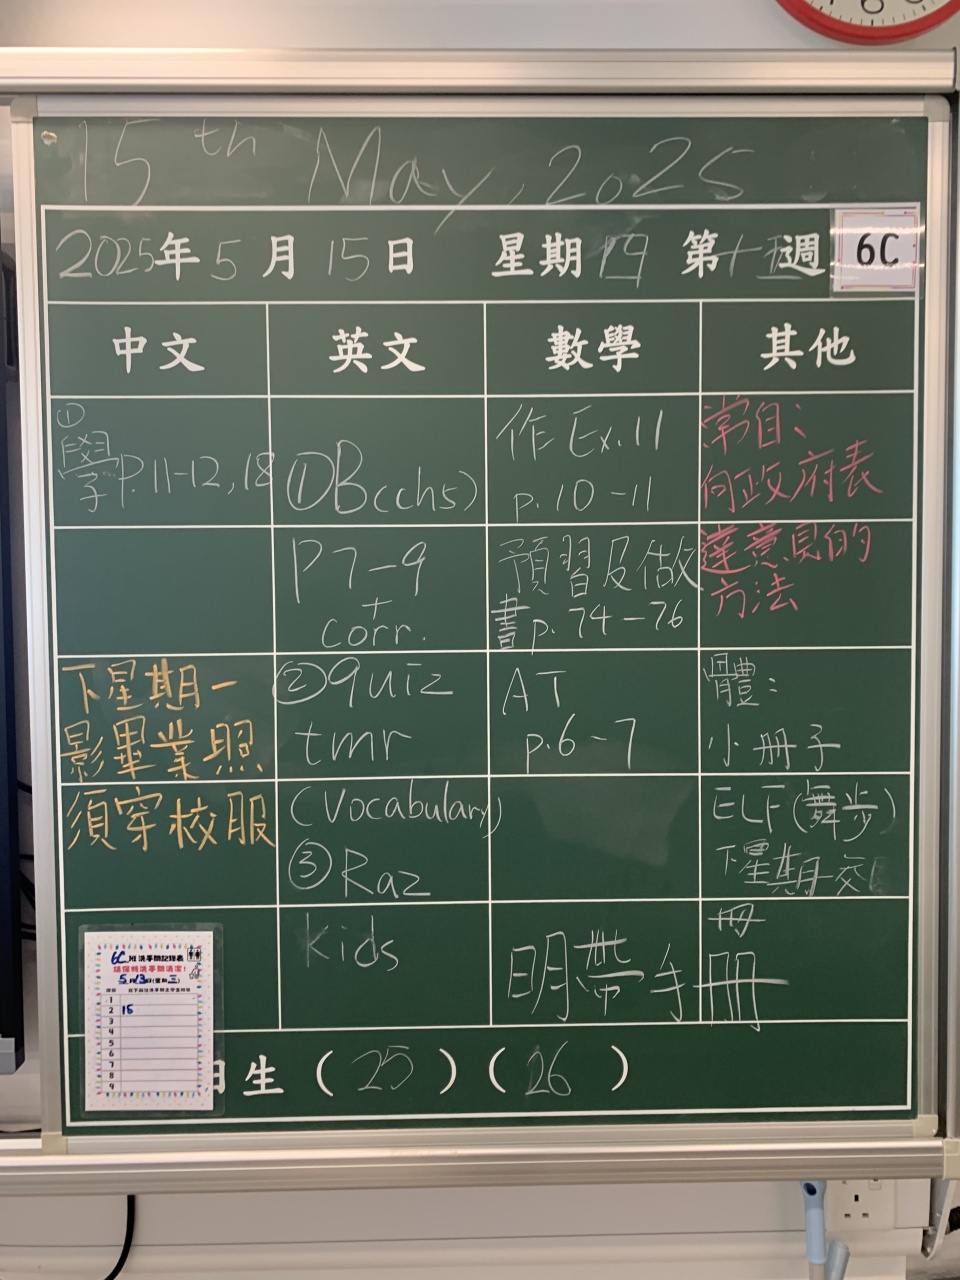 15th May, 2025
2025年5月15日 星期四 第十五週
6C
中文 英文 數學 其他
①
學P.11-12,18
下星期一
影畢業照
須穿校服
①B(ch5)
P7-9
+
corr.
②quiz
tmr
(Vocabulary)
③Raz
kids
作Ex.11
p.10-11
預習及做
書p.74-76
AT
p.6-7
常自:
向政府表
達意見的
方法
體:
小冊子
ELF(舞步)
下星期一交
冊
明帶手冊
日生(25)(26)
6C班洗手間記錄表
請保持洗手間清潔!
5月13日(星期三)
1
2 15
3
4
5
6
7
8
9